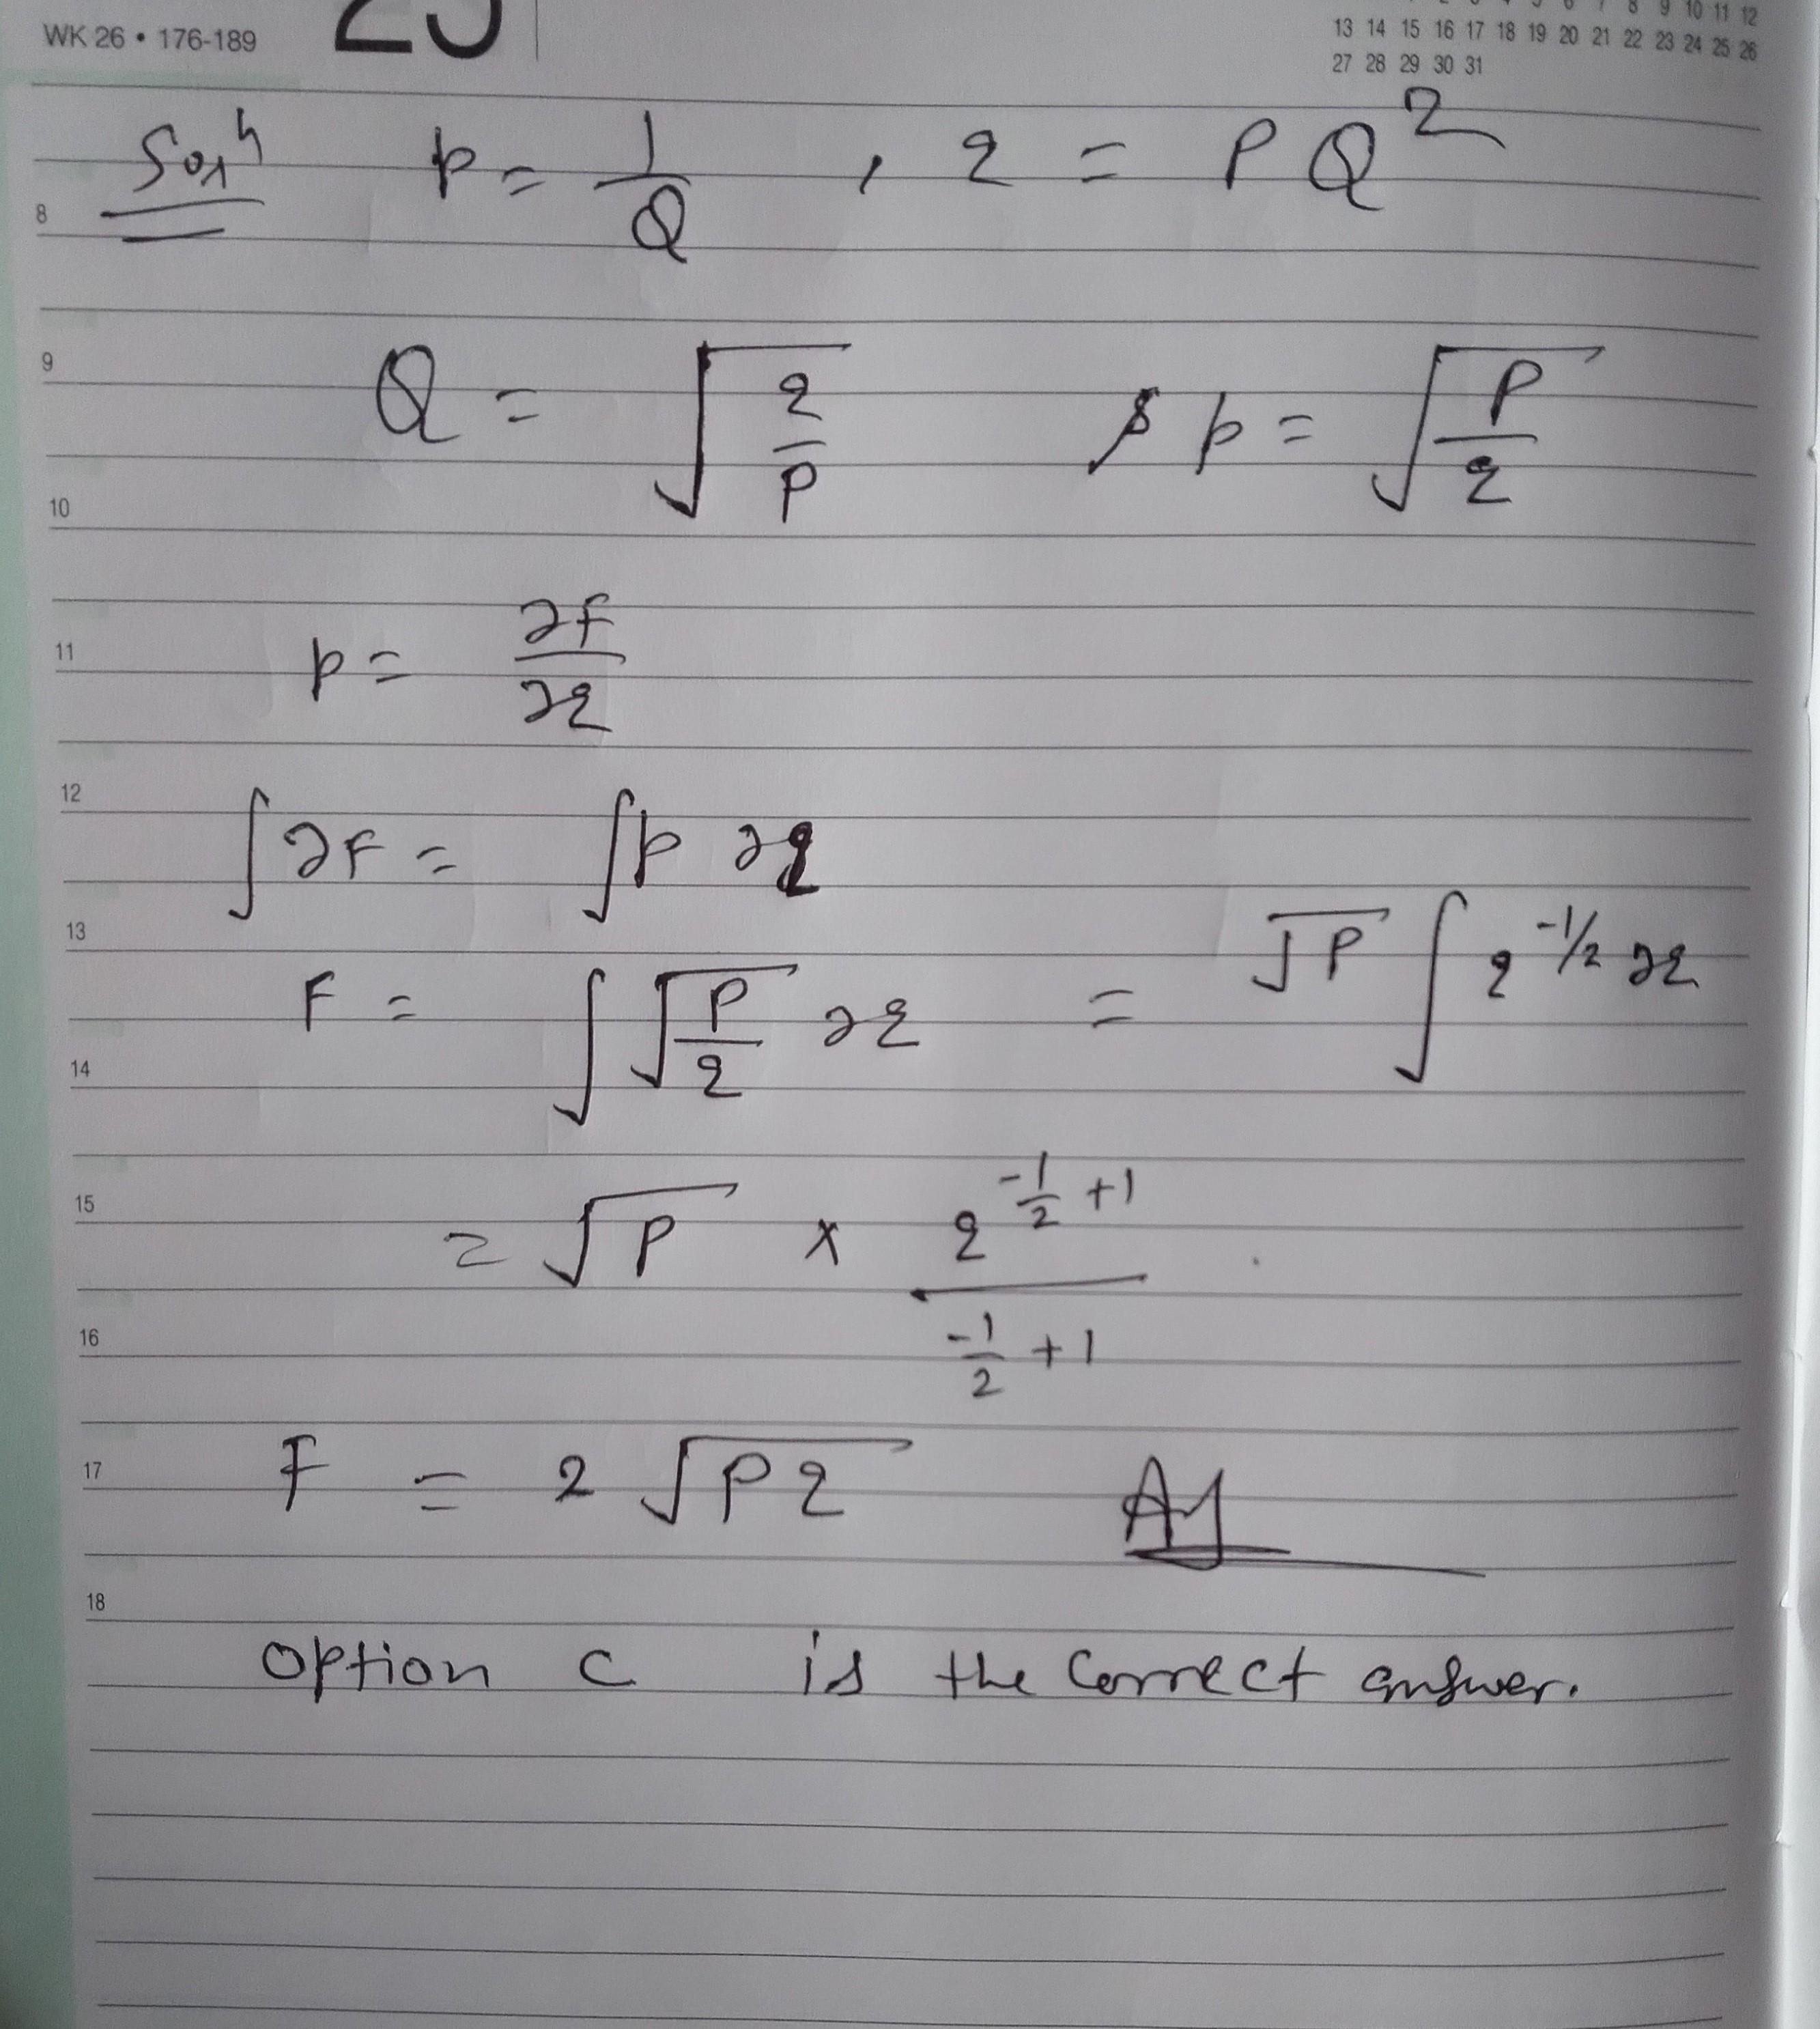 WK 26 • 176-189
9 10 11 12
13 14 15 16 17 18 19 20 21 22 23 24 25 26
27 28 29 30 31
Solⁿ p = 1/Q , q = PQ²
8
9
Q = √(q/P) p = √(P/q)
10
11
p = ∂F/∂q
12
∫∂F = ∫p ∂q
13
F = ∫√(P/q) ∂q = √P ∫ q^(-1/2) ∂q
14
15
= √P × q^(-1/2 + 1) / (-1/2 + 1)
16
17
F = 2 √Pq Ans
18
Option C is the correct answer.